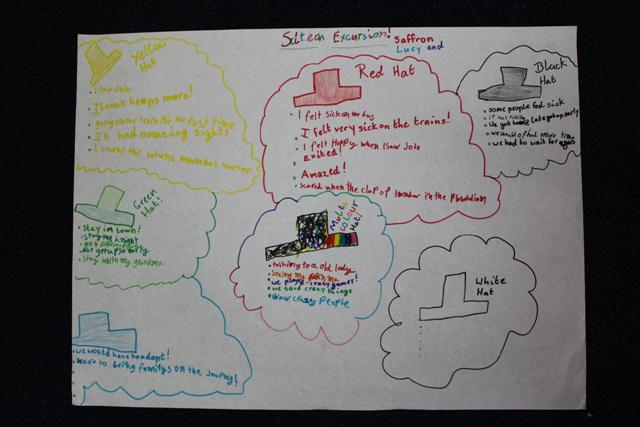 Scitech Excursion!
Saffron
Lucy and
Yellow Hat
I saw Jodo
I learnt heaps more!
going on the train for the first time
It had amazing sights
I learnt that saturns moon has water
Red Hat
I felt sick on the bus
I felt very sick on the trains!
I felt Happy when I saw Jodo
Exited!
Amazed!
scared when the clap of thunder in the
Black Hat
some people feel sick
it was tiring
we got home late got up early
we would of had more time
we had to wait for ages
Green Hat!
stay in town!
stay the night
not get up so early
stay with my grandma
Multi colour Hat!
talking to a old lady
seeing my
we played crazy games!
we said crazy things
saw crazy people
White Hat
we would have
have to bring familys on the journey!